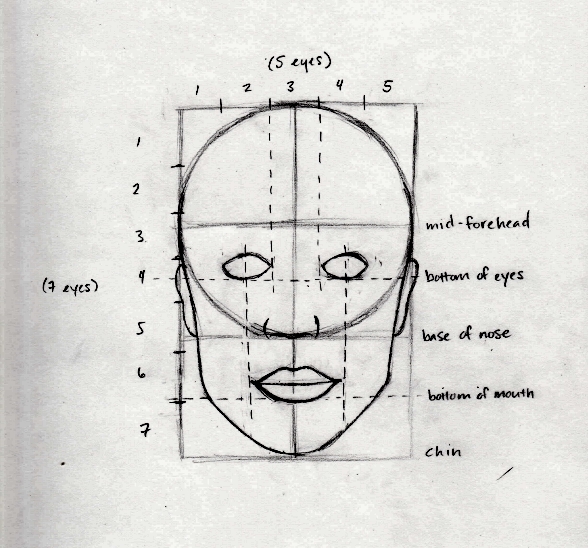 (5 eyes)
1 2 3 4 5
1
2
mid-forehead
3
(7 eyes)
4
bottom of eyes
5
base of nose
6
bottom of mouth
7
chin